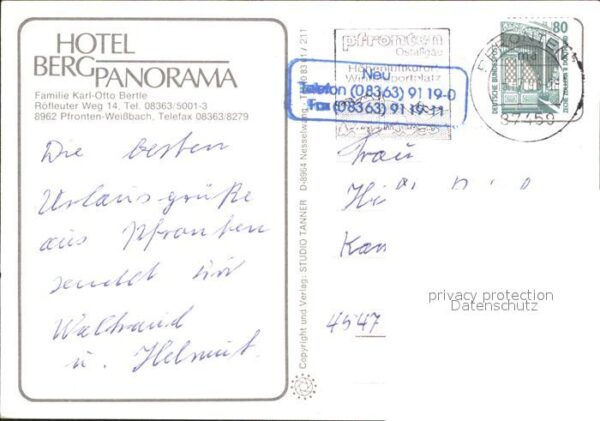 HOTEL
BERGPANORAMA
Familie Karl-Otto Bertle
Röfleuter Weg 14, Tel. 08363/5001-3
8962 Pfronten-Weißbach, Telefax 08363/8279
Die besten
Urlausgrüße
aus Pfronten
sendet dir
Waltraud
u. Helmut.
Copyright und Verlag: STUDIO TANNER D-8964 Nesselwang
/ 211
pfronten
Ostallgäu
Höhenluftkurort
Wintersportplatz
Neu
Telefon (08363) 91 19-0
Fax (08363) 91 19-11
80
DEUTSCHE BUNDESPOST
PFRONTEN
87459
Frau
4547
privacy protection
Datenschutz